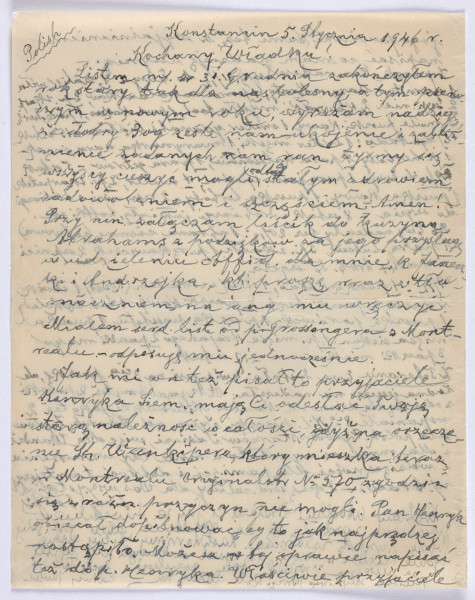 Polish
Konstancin 5 Stycznia 1946 r.
Kochany Władku!
Listem mym z 31 Grudnia zakończyłem
rok stary tak dla nas bolesny, a tym pierw
szym w nowym roku, wyrażam nadzieję
że dobry Bóg ześle nam ukojenie i zabliź-
nienie zadanych nam ran,
wszyscy cieszyć mogli się stałym zdrowiem
zadowoleniem i szczęściem. Amen!
Przy nin. załączam liścik do kuzyna
Abrahamsa z podzięką za jego
dla mnie,
i Andrzejka, kt. proszę wraz z
maczeniem na ang. mu wręczyć
Miałem serd. list od p. Grossingera z Mont-
realu - odpisuję mu jednocześnie.
Jak Ci on też pisał to przyjaciele
Henryka mają Ci odesłać Twoją
starą należność w całości gdyż na orzecze-
nie który mieszka teraz
w Montrealu № 570 zgodzić
się z różn. przyczyn nie mogli. Pan Henryk
obiecał dopilnować, by to jak najprędzej
nastąpiło. Możesz w tej sprawie napisać
też do p. Henryka. Właściwie przyjaciele